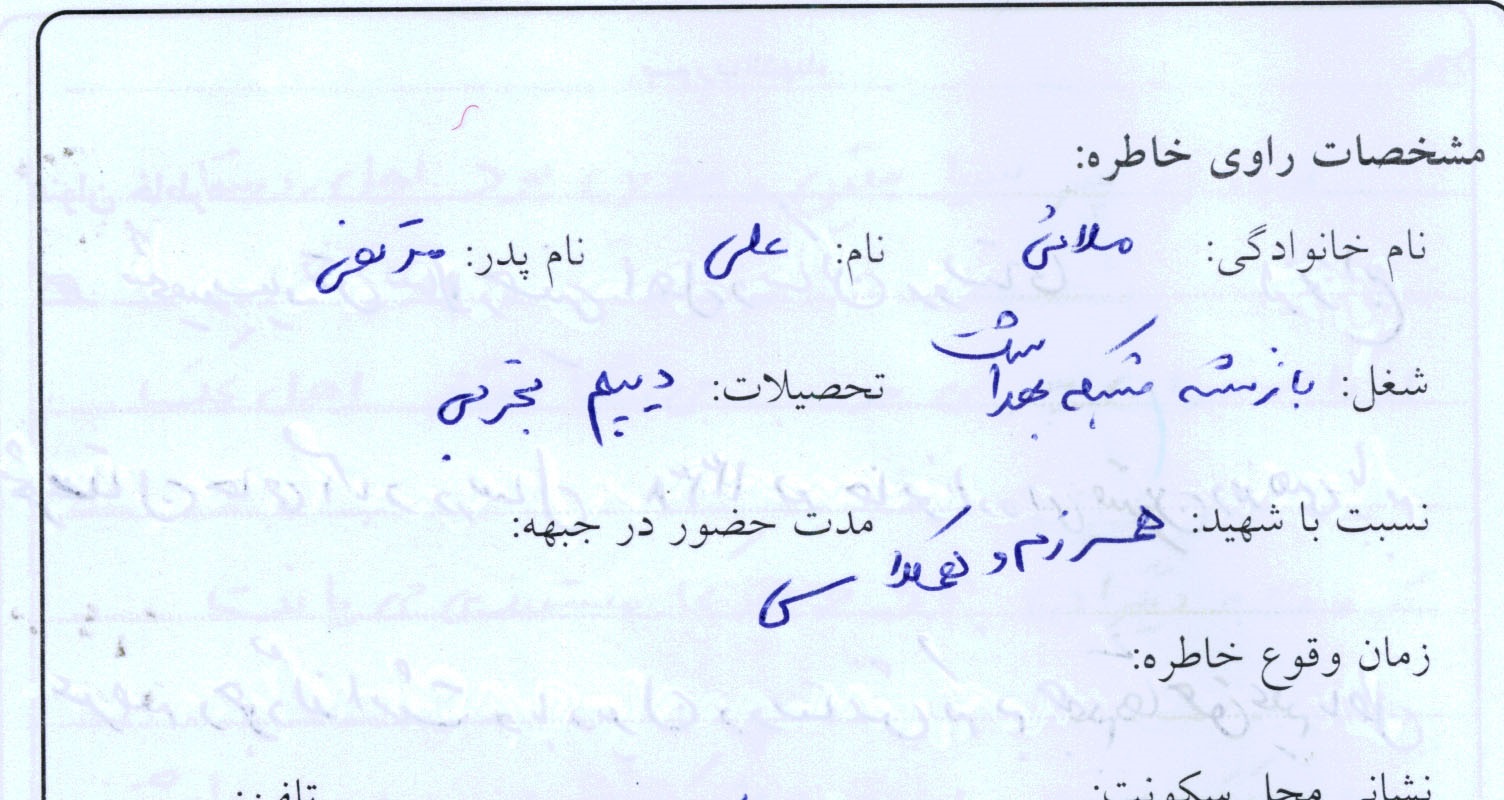 مشخصات راوی خاطره:
نام خانوادگی: ملائی نام: علی نام پدر: مرتضی
شغل: بازنشسته شبکه بهداشت تحصیلات: دیپلم تجربی
نسبت با شهید: همرزم و همکلاسی مدت حضور در جبهه:
زمان وقوع خاطره:
نشانی محل سکونت: تلفن: